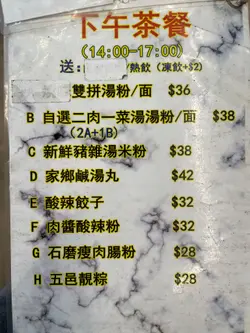 下午茶餐
(14:00-17:00)
送: /熱飲 (凍飲+$2)
雙拼湯粉/面 $36
B 自選二肉一菜湯湯粉/面 $38
(2A+1B)
C 新鮮豬雜湯米粉 $38
D 家鄉鹹湯丸 $42
E 酸辣餃子 $32
F 肉醬酸辣粉 $32
G 石磨瘦肉腸粉 $28
H 五邑靚粽 $28